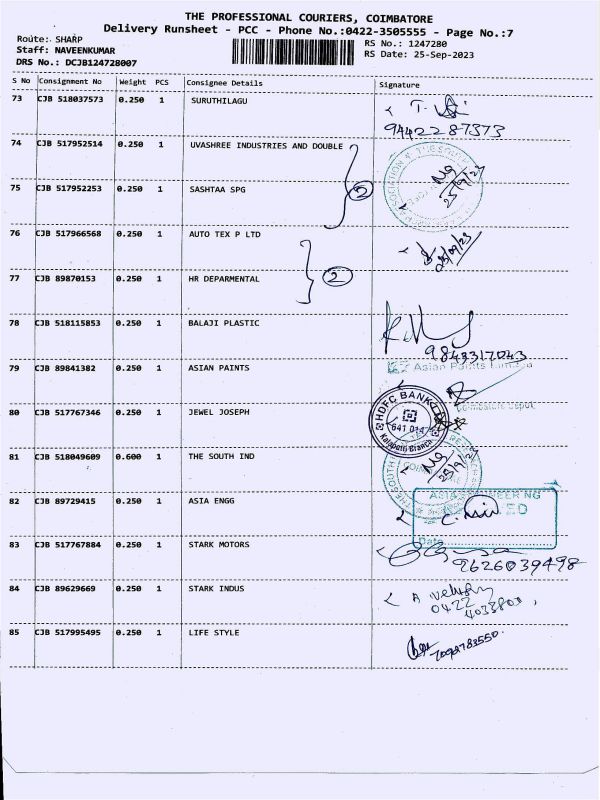 THE PROFESSIONAL COURIERS, COIMBATORE
Delivery Runsheet - PCC - Phone No.:0422-3505555 - Page No.:7
Route: SHARP
RS No.: 1247280
Staff: NAVEENKUMAR
RS Date: 25-Sep-2023
DRS No.: DCJB124728007
S No Consignment No Weight PCS Consignee Details Signature
73 CJB 518037573 0.250 1 SURUTHILAGU
9442287373
74 CJB 517952514 0.250 1 UVASHREE INDUSTRIES AND DOUBLE
25/9/23
75 CJB 517952253 0.250 1 SASHTAA SPG
76 CJB 517966568 0.250 1 AUTO TEX P LTD
25/09/23
77 CJB 89870153 0.250 1 HR DEPARMENTAL 2
78 CJB 518115853 0.250 1 BALAJI PLASTIC
9843317043
79 CJB 89841382 0.250 1 ASIAN PAINTS Asian Paints Limited
Coimbatore Depot
80 CJB 517767346 0.250 1 JEWEL JOSEPH
HDFC BANK
641 014
Kalapatti Branch
81 CJB 518049609 0.600 1 THE SOUTH IND
25/9/23
82 CJB 89729415 0.250 1 ASIA ENGG
Date
83 CJB 517767884 0.250 1 STARK MOTORS
9626039498
84 CJB 89629669 0.250 1 STARK INDUS
0422
4033800
85 CJB 517995495 0.250 1 LIFE STYLE